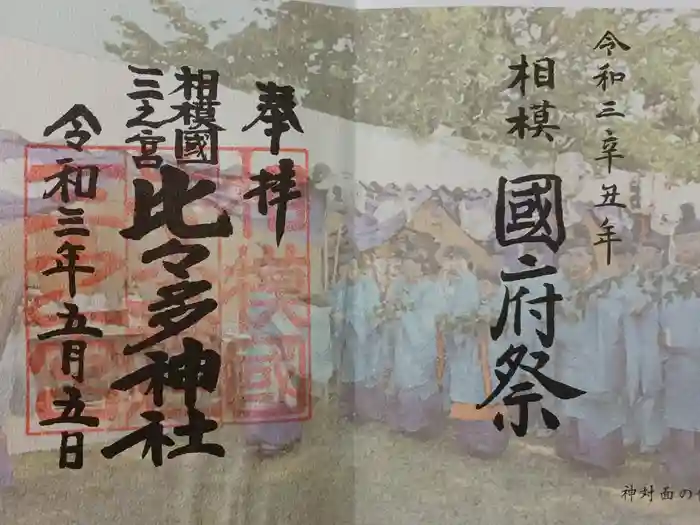 令和三辛丑年
相模
國府祭
奉拝
相模國
三之宮
比々多神社
令和三年五月五日
神対面の